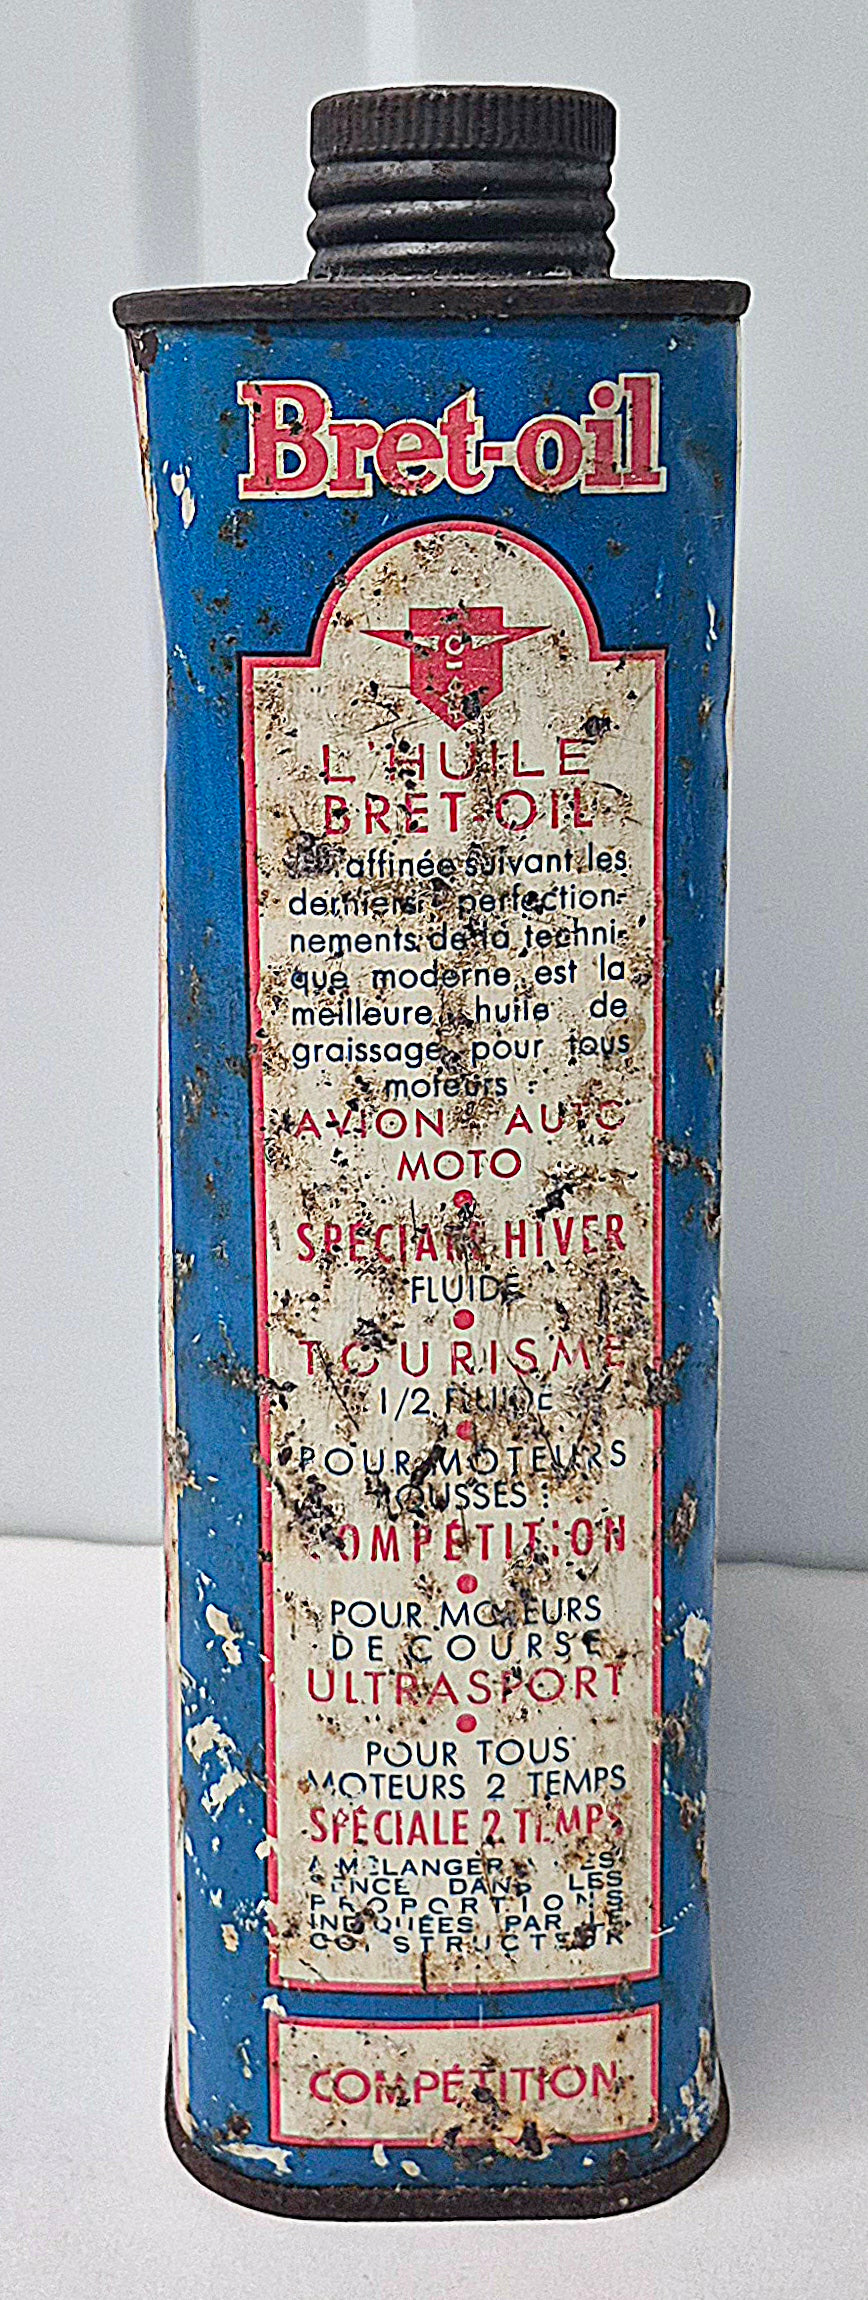 Bret-oil
C
L'HUILE
BRET-OIL
affinée suivant les
derniers perfection-
nements de la techni-
que moderne, est la
meilleure huile de
graissage pour tous
moteurs :
AVION - AUTO
MOTO
SPÉCIALE HIVER
FLUIDE
TOURISME
1/2 FLUIDE
POUR MOTEURS
POUSSÉS :
COMPÉTITION
POUR MOTEURS
DE COURSE
ULTRASPORT
POUR TOUS
MOTEURS 2 TEMPS
SPÉCIALE 2 TEMPS
A MÉLANGER A L'ES-
SENCE DANS LES
PROPORTIONS
INDIQUÉES PAR LE
CONSTRUCTEUR
COMPÉTITION